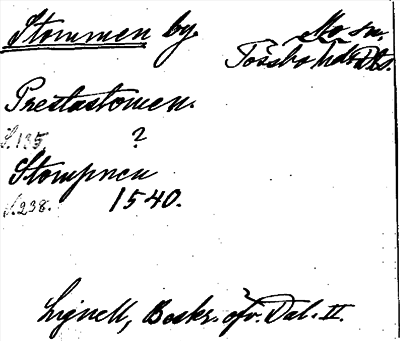 Stommen by.
Mo sn.
Tössbo hd. Dls.
Prestastomen.
S. 135. ?
Stompnen
S. 238. 1540.
Lignell, Beskr. öfv. Dal. II.